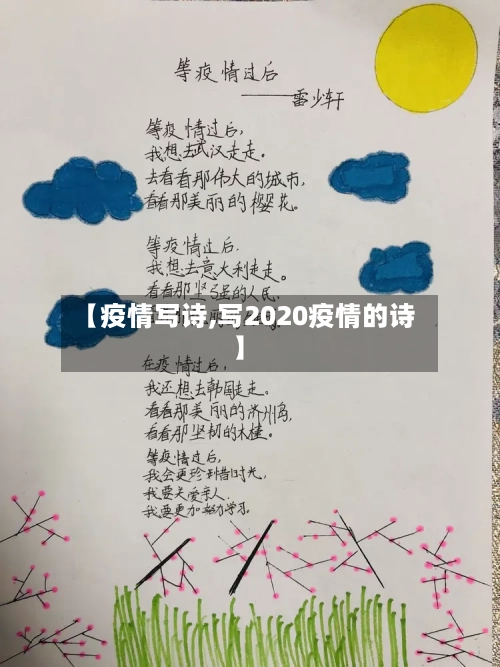 等疫情过后
——雷少轩
等疫情过后,
我想去武汉走走。
去看看那伟大的城市,
看看那美丽的樱花。
等疫情过后.
我想去意大利走走。
看看那坚强的人民,
【疫情写诗,写2020疫情的诗
】
在疫情过后,
我还想去韩国走走。
看看那美丽的济州岛,
看看那坚韧的木槿。
等疫情过后,
我会更珍惜时光,
我要关爱亲人.
我要更加努力学习。